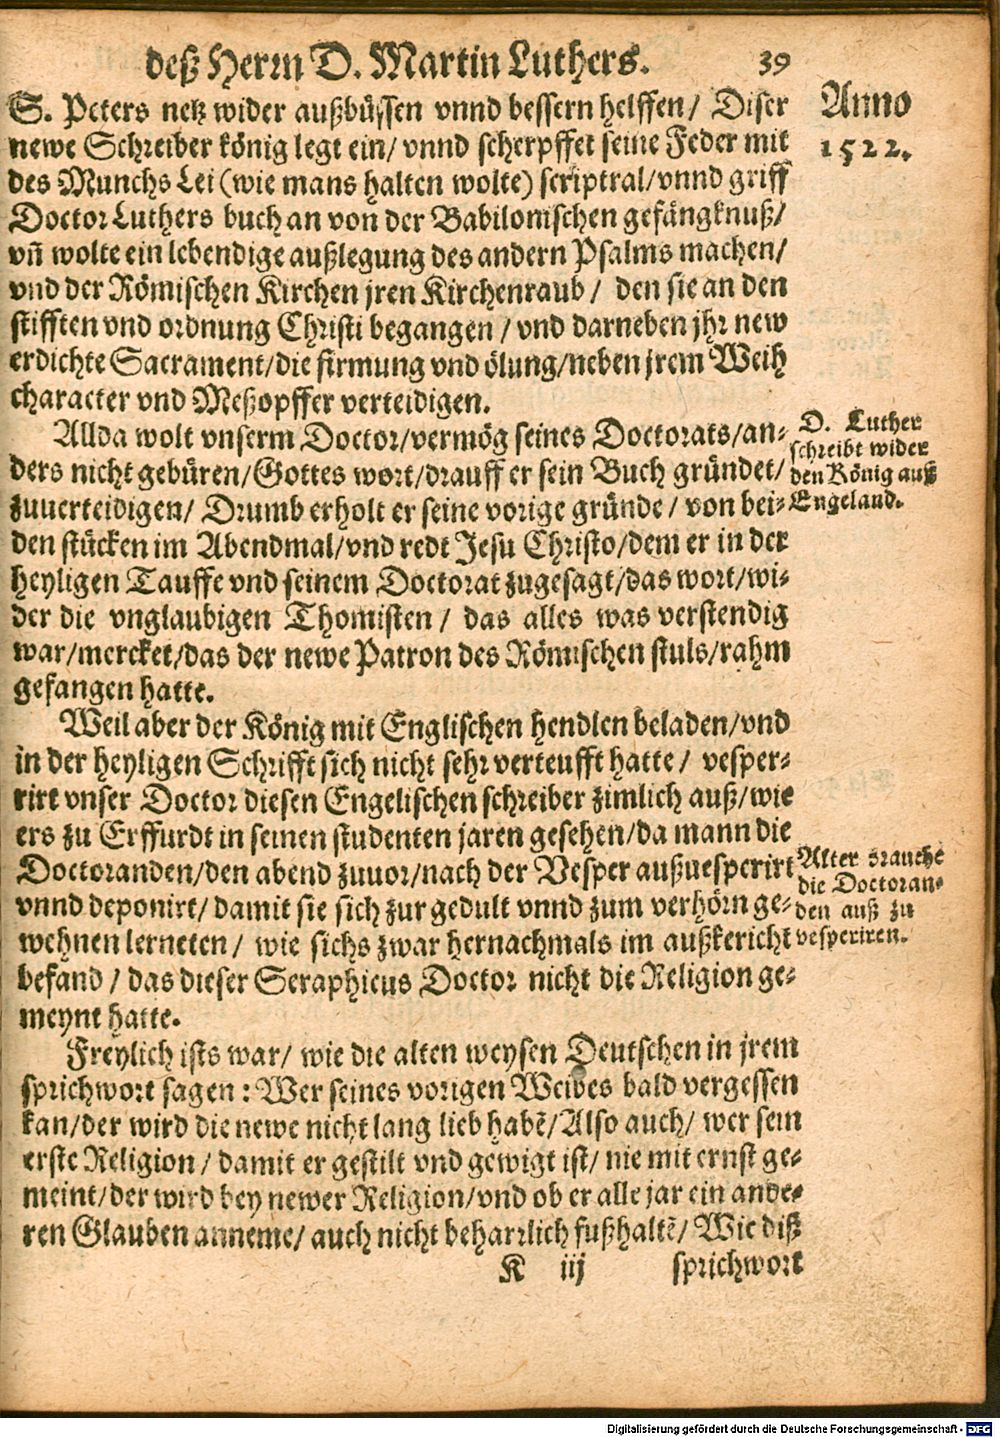 deß Herrn D. Martin Luthers. 39
Anno
1522.
S. Peters netz wider außbüssen vnnd bessern helffen/ Diser
newe Schreiber könig legt ein/ vnnd scherpffet seine Feder mit
des Munchs Lei (wie mans halten wolte) scriptral/vnnd griff
Doctor Luthers buch an von der Babilonischen gefängknuß/
vñ wolte ein lebendige außlegung des andern Psalms machen/
vnd der Römischen Kirchen jren Kirchenraub / den sie an den
stifften vnd ordnung Christi begangen / vnd darneben jhr new
erdichte Sacrament/die firmung vnd ölung/neben jrem Weih
character vnd Meßopffer verteidigen.
Allda wolt vnserm Doctor/vermög seines Doctorats/an-
ders nicht gebüren/Gottes wort/drauff er sein Buch gründet/
zuuerteidigen/ Drumb erholt er seine vorige gründe/ von bei-
den stücken im Abendmal/vnd redt Jesu Christo/dem er in der
heyligen Tauffe vnd seinem Doctorat zugesagt/das wort/wi-
der die vnglaubigen Thomisten / das alles was verstendig
war/mercket/das der newe Patron des Römischen stuls/rahm
gefangen hatte.
D. Luther
schreibt wider
den König auß
Engeland.
Weil aber der König mit Englischen hendlen beladen/vnd
in der heyligen Schrifft sich nicht sehr verteufft hatte / vesper-
rirt vnser Doctor diesen Engelischen schreiber zimlich auß/wie
ers zu Erffurdt in seinen studenten jaren gesehen/da mann die
Doctoranden/den abend zuuor/nach der Vesper außuesperirt
vnnd deponirt/ damit sie sich zur gedult vnnd zum verhörn ge-
wehnen lerneten / wie sichs zwar hernachmals im außkericht
befand / das dieser Seraphicus Doctor nicht die Religion ge-
meynt hatte.
Alter brauche
die Doctoran-
den auß zu
vesperiren.
Freylich ists war/ wie die alten weysen Deutschen in jrem
sprichwort sagen : Wer seines vorigen Weibes bald vergessen
kan/der wird die newe nicht lang lieb habẽ/Also auch/ wer sein
erste Religion / damit er gestilt vnd gewigt ist/ nie mit ernst ge-
meint/der wird bey newer Religion/vnd ob er alle jar ein ande-
ren Glauben anneme/ auch nicht beharrlich fußhaltẽ/ Wie diß
K iij sprichwort
Digitalisierung gefördert durch die Deutsche Forschungsgemeinschaft - DFG